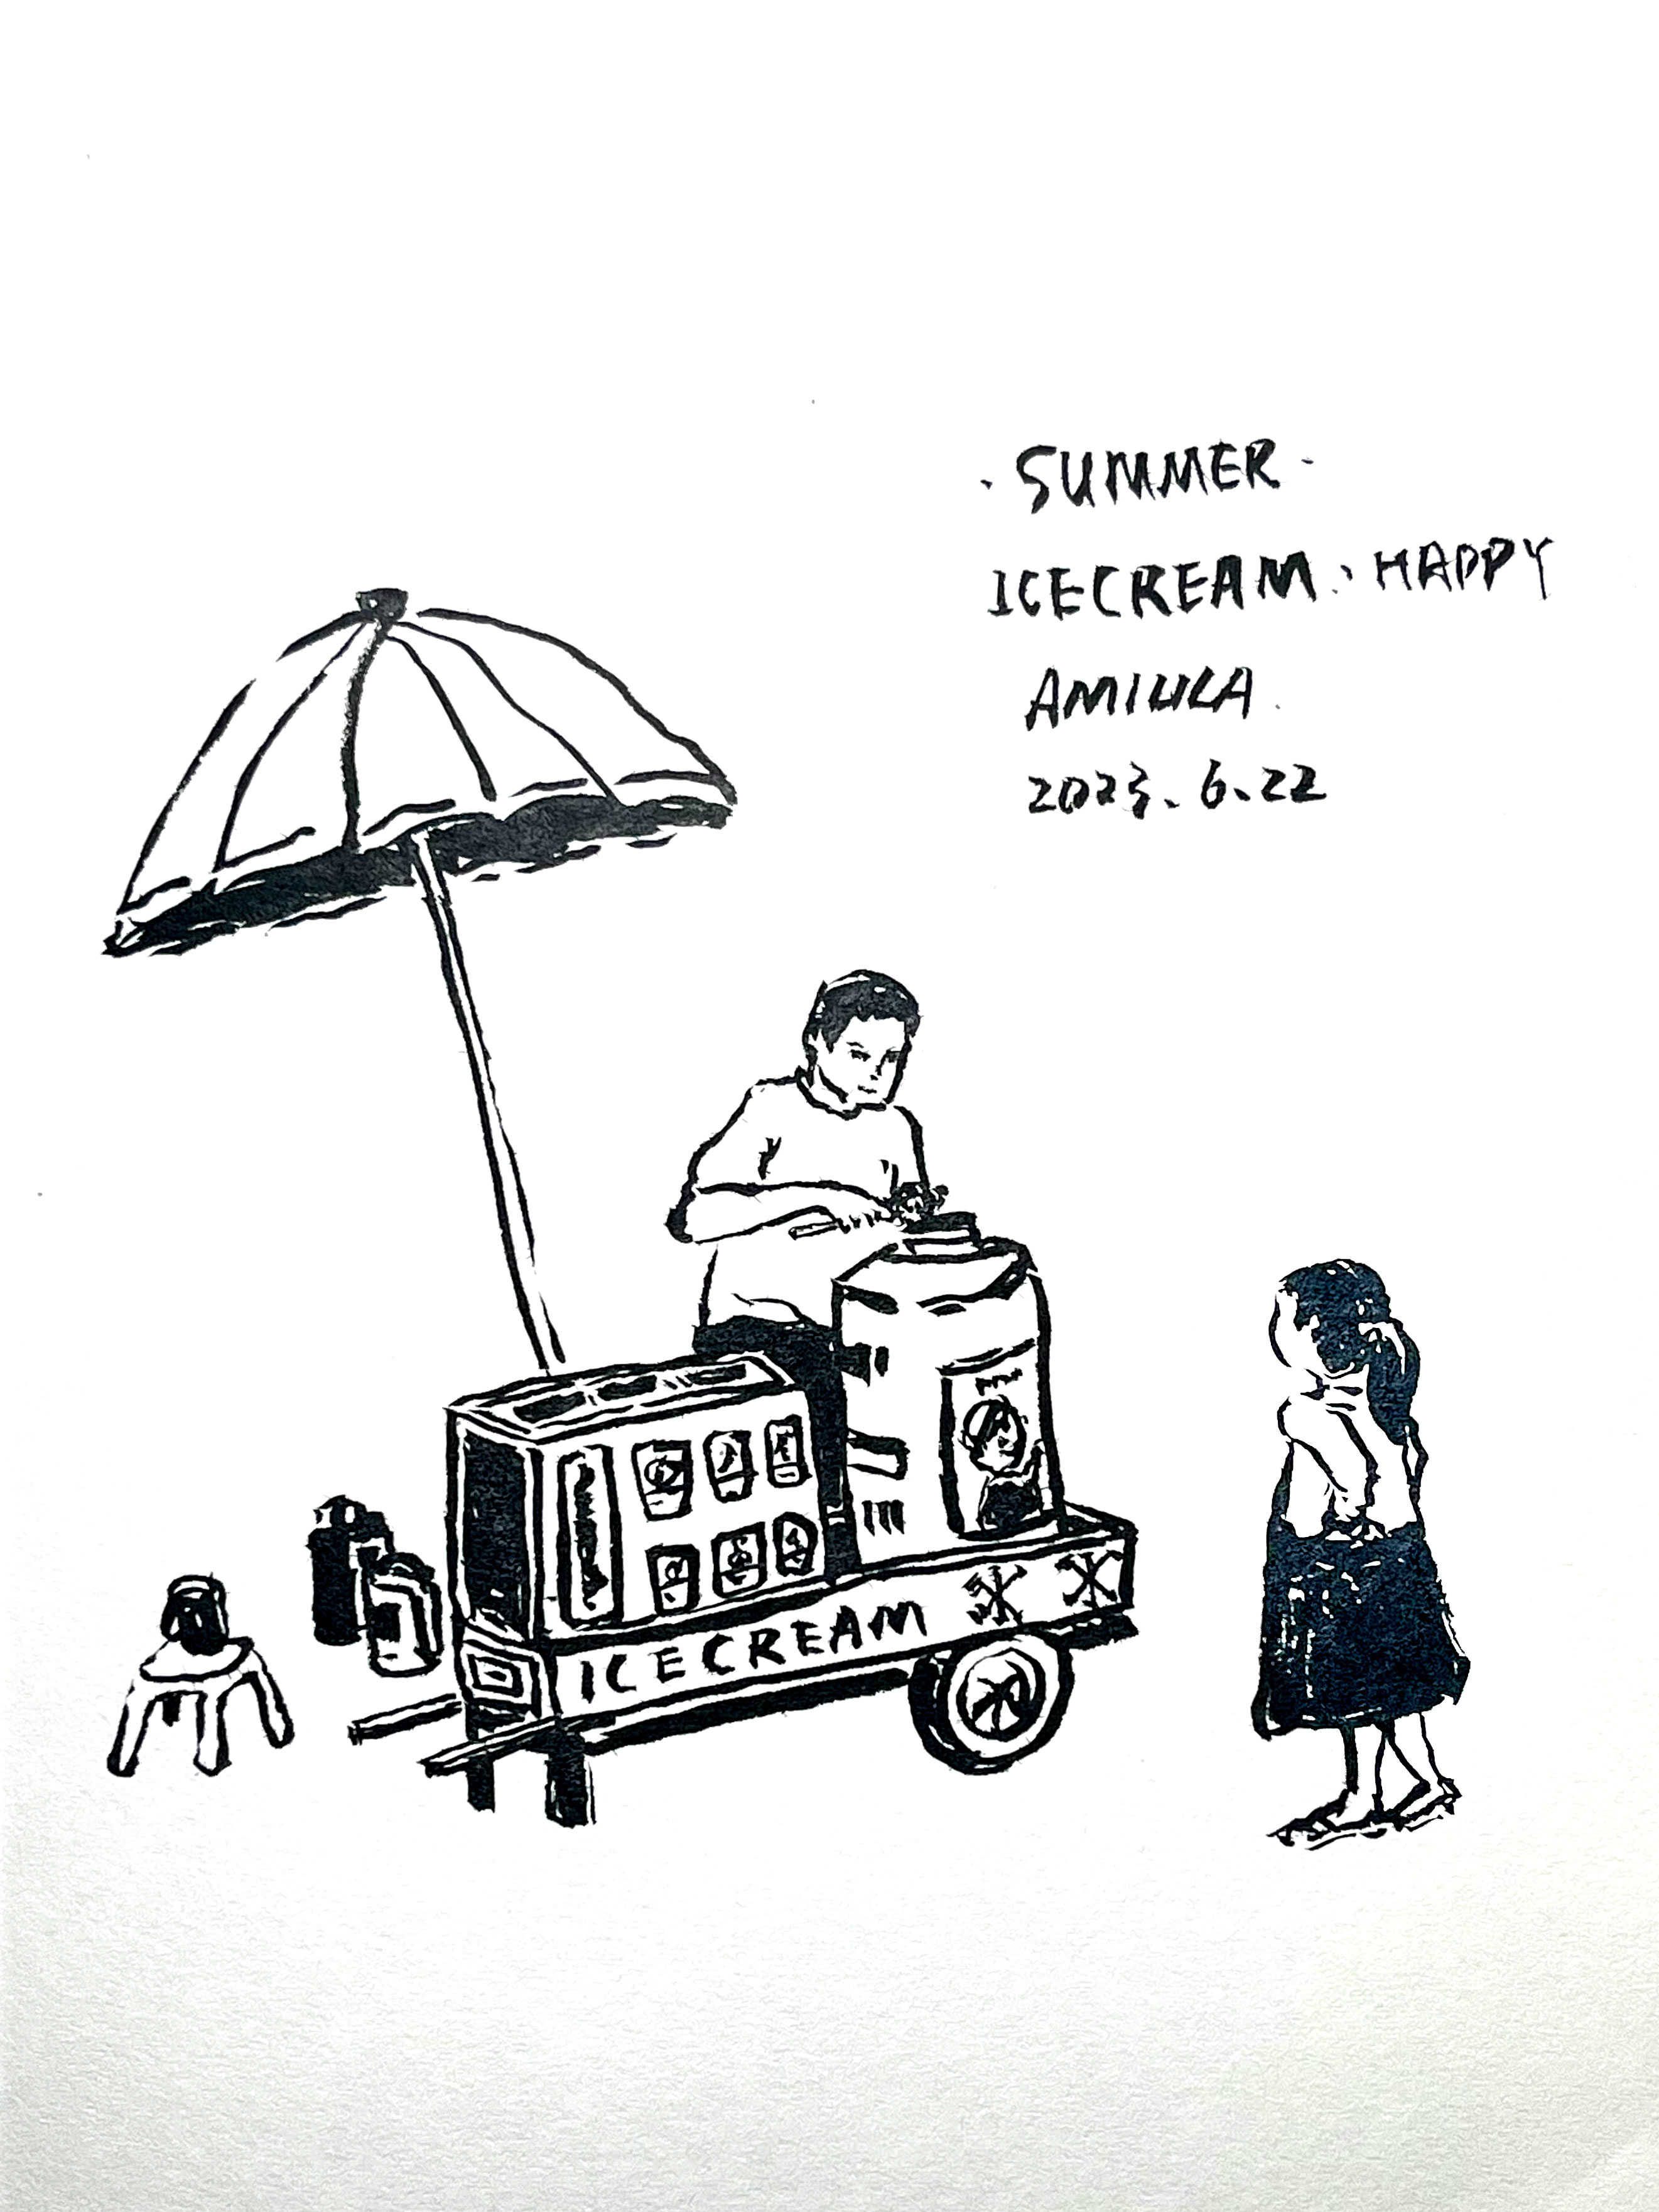 · SUMMER ·
ICECREAM · HAPPY
2023.6.22
ICECREAM